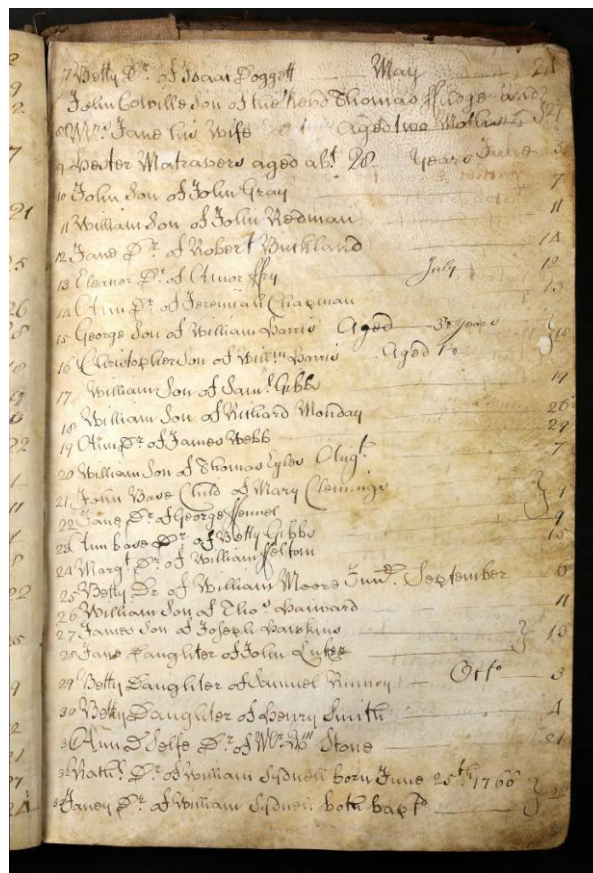 7 Betty Dr. of Isaac Doggett May 24
John Colville Son of the Revd Thomas ffudge and
8 Mrs. Jane his Wife Aged two Months 27
9 Hester Matravers aged abt. 28 Years June 5
10 John Son of John Gray 7
11 William Son of John Redman 11
12 Jane Dr. of Robert Buckland 14
13 Eleanor Dr. of Amor ffry July 12
14 Ann Dr. of Jeremiah Chapman 13
15 George Son of William Harris Aged 3 years
16 Christopher Son of Willm Harris Aged 18
17 William Son of Saml. Gibbs 19
18 William Son of Richard Monday 26
19 Ann Dr. of James Webb 29
20 William Son of Thomas Eyles Augt. 7
21 John Base Child of Mary Clemmings
22 Jane Dr. of George ffennel 9
23 Ann base Dr. of Betty Gibbs 15
24 Margt. Dr. of William ffeltom
25 Betty Dr. of William Moore September 6
26 William Son of Thos. Harward 11
27 James Son of Joseph Hawkins
28 Jane Daughter of John 13
29 Betty Daughter of Samuel Octo 3
30 Betty Daughter of Henry Smith 4
31 Ann D Selfe Dr. of Mr. Wm Stone 21
32 Dr. of William Sydnell born June 25th 1760
33 Janey Dr. of William Sydnell both bapd